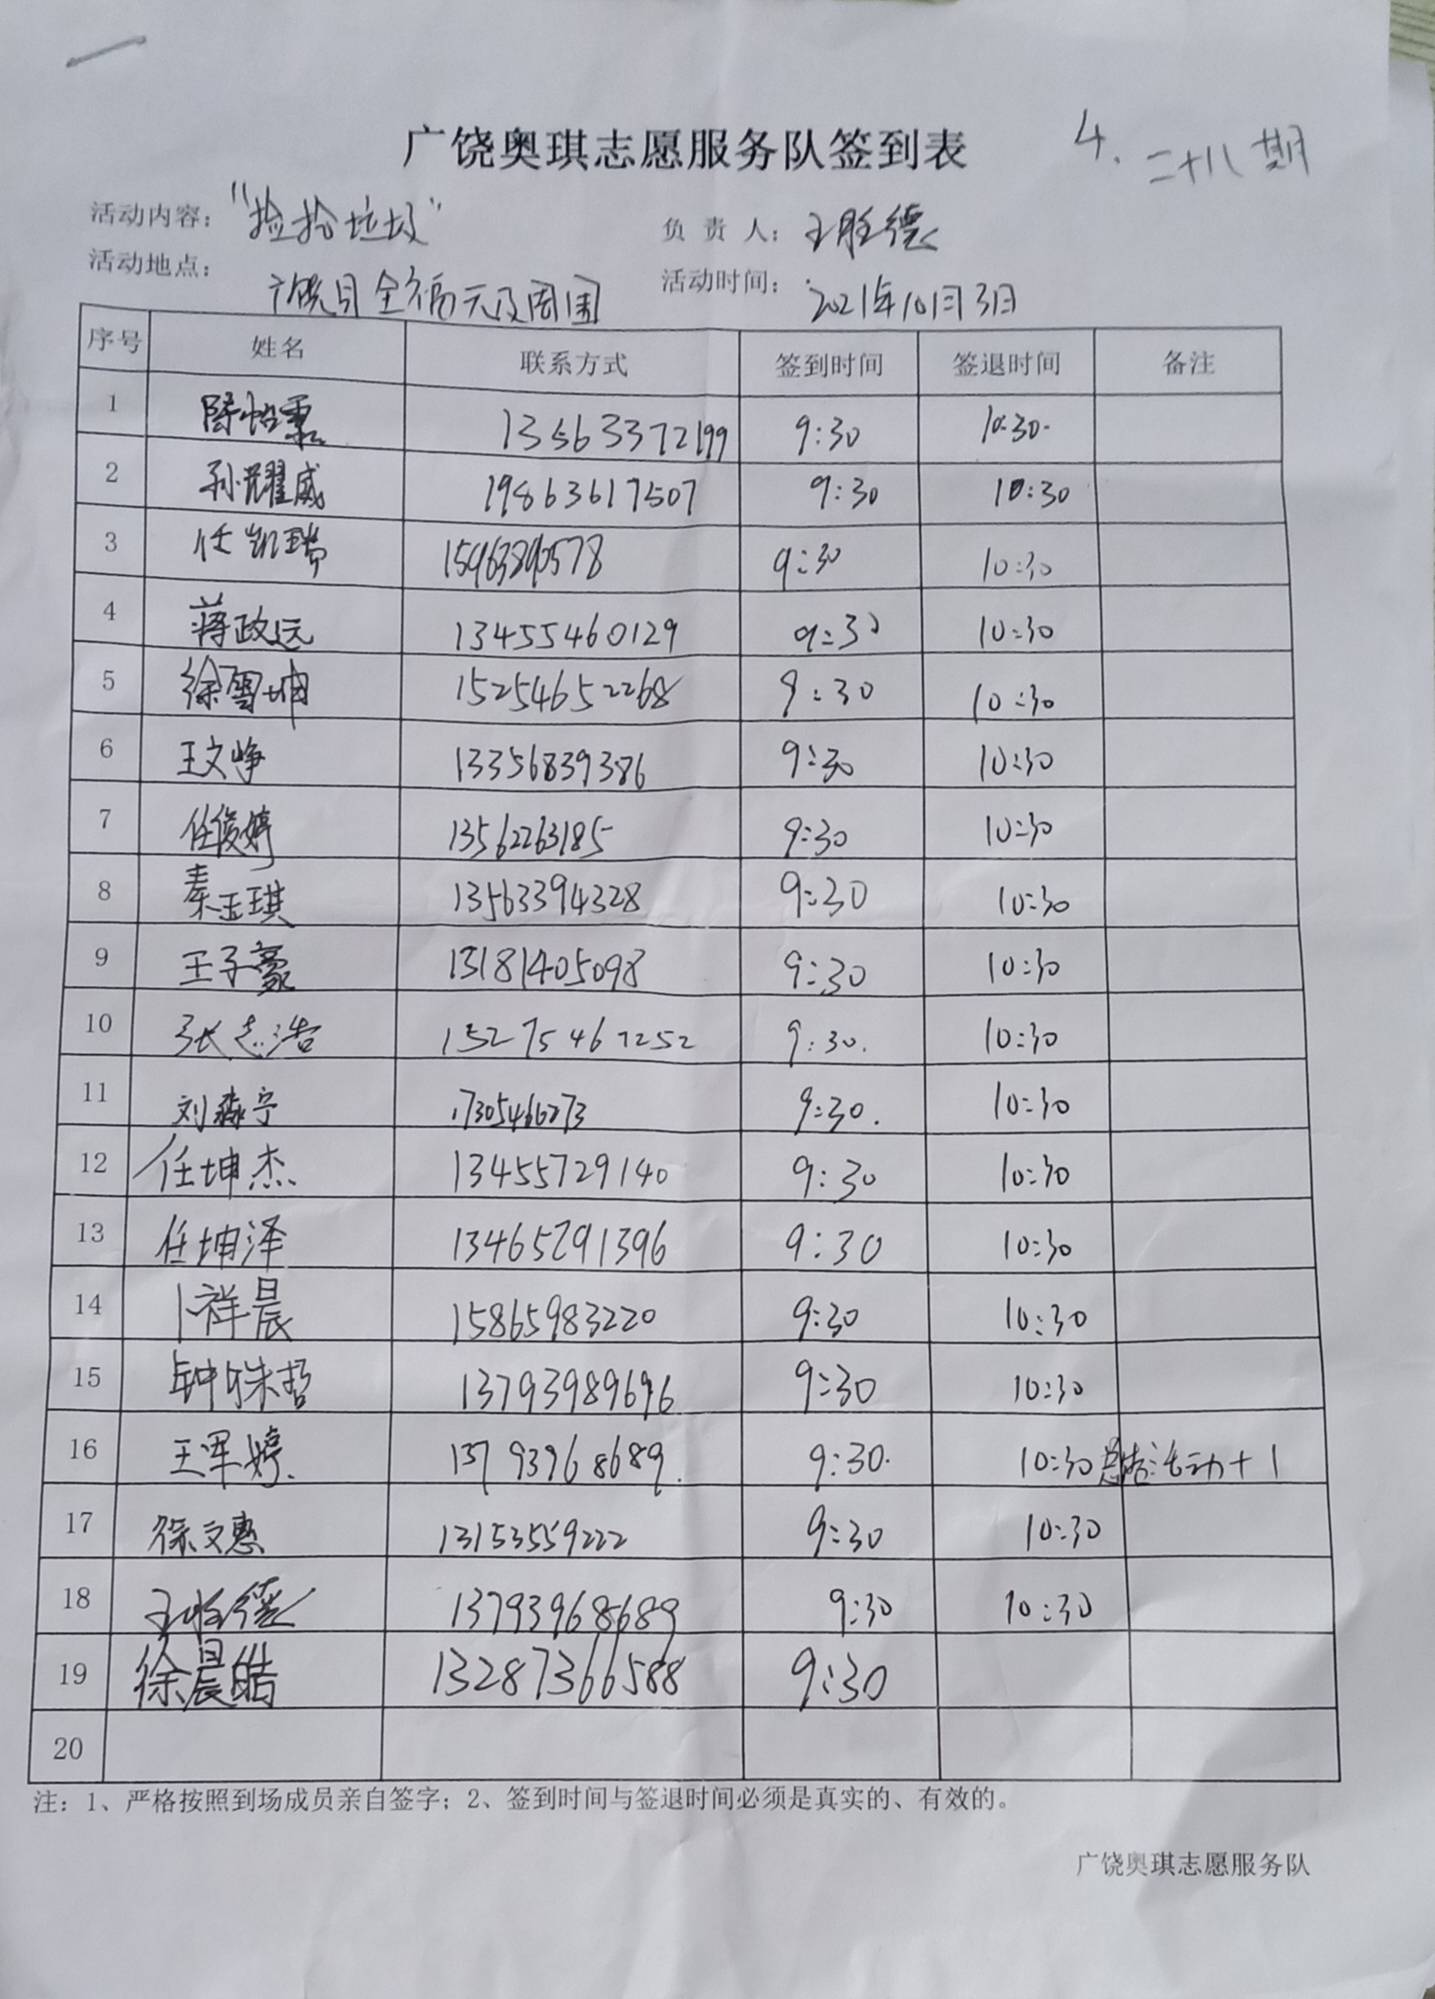 广饶奥琪志愿服务队签到表
4. 二十八期
活动内容： “捡拾垃圾” 负 责 人： 王胜德
活动地点： 广饶县全福元及周围 活动时间： 2021年10月3日
序号 姓名 联系方式 签到时间 签退时间 备注
1 13563372199 9:30 10:30.
2 孙耀威 19863617507 9:30 10:30
3 任凯瑞 15963890578 9:30 10:30
4 蒋政远 13455460129 9:30 10:30
5 徐雪坤 15254652268 9:30 10:30
6 王文峥 13356839386 9:30 10:30
7 任俊婷 13562263185 9:30 10:30
8 秦玉琪 13563394328 9:30 10:30
9 王子豪 13181405098 9:30 10:30
10 张志浩 15275467252 9:30. 10:30
11 刘淼宁 17305466273 9:30. 10:30
12 任坤杰 13455729140 9:30 10:30
13 任坤泽 13465291396 9:30 10:30
14 卜祥晨 15865983220 9:30 10:30
15 13793989696 9:30 10:30
16 王军婷. 13793968689. 9:30. 10:30 总结活动+1
17 徐文惠 13153559222 9:30 10:30
18 王胜德 13793968689 9:30 10:30
19 徐晨皓 13287366588 9:30
20
注：1、严格按照到场成员亲自签字；2、签到时间与签退时间必须是真实的、有效的。
广饶奥琪志愿服务队